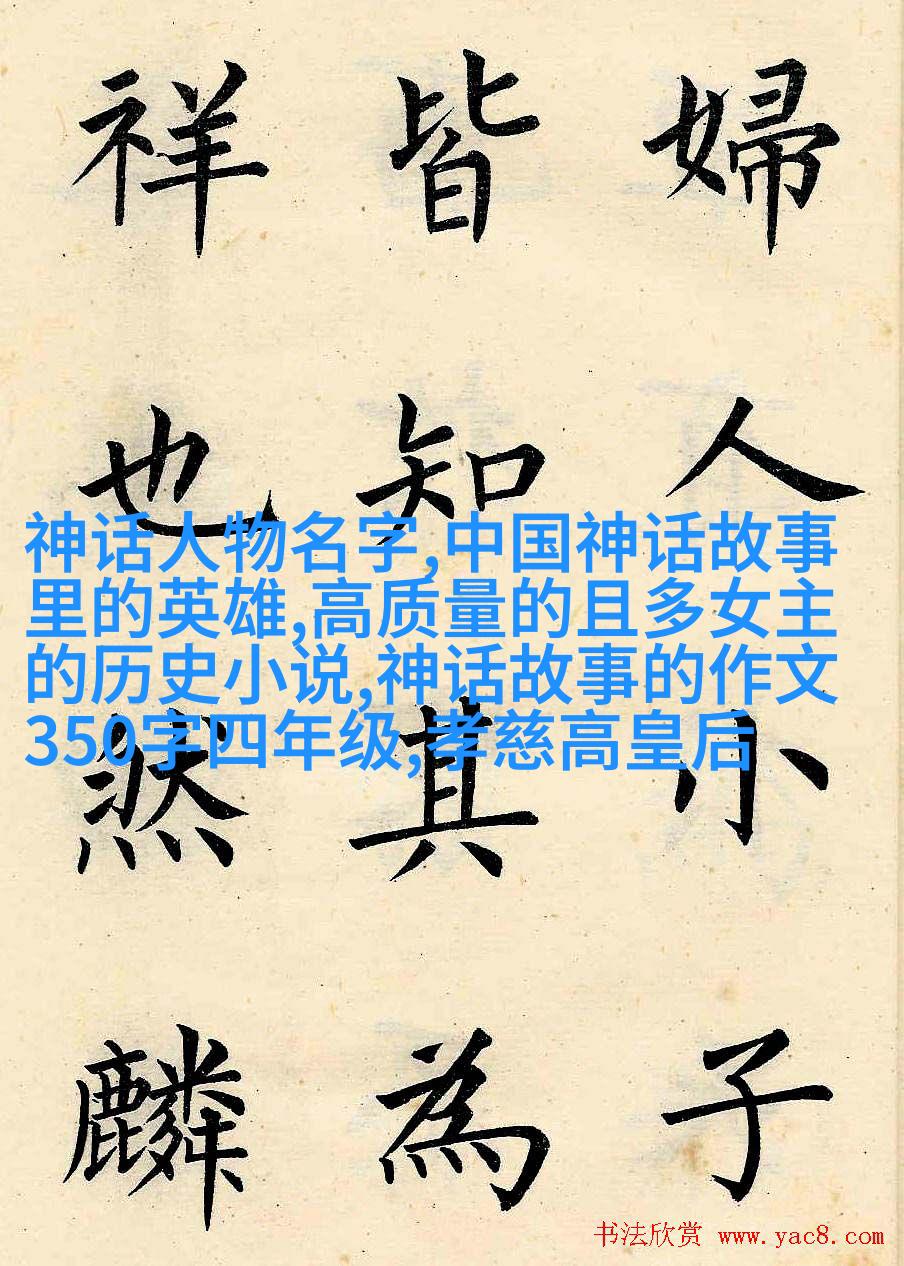 婦人小子
皆知其為
祥也然麟
神话人物名字,中国神话故事
里的英雄,高质量的且多女主
的历史小说,神话故事的作文
350字四年级,孝慈高皇后
书法欣赏 www.yac8.com